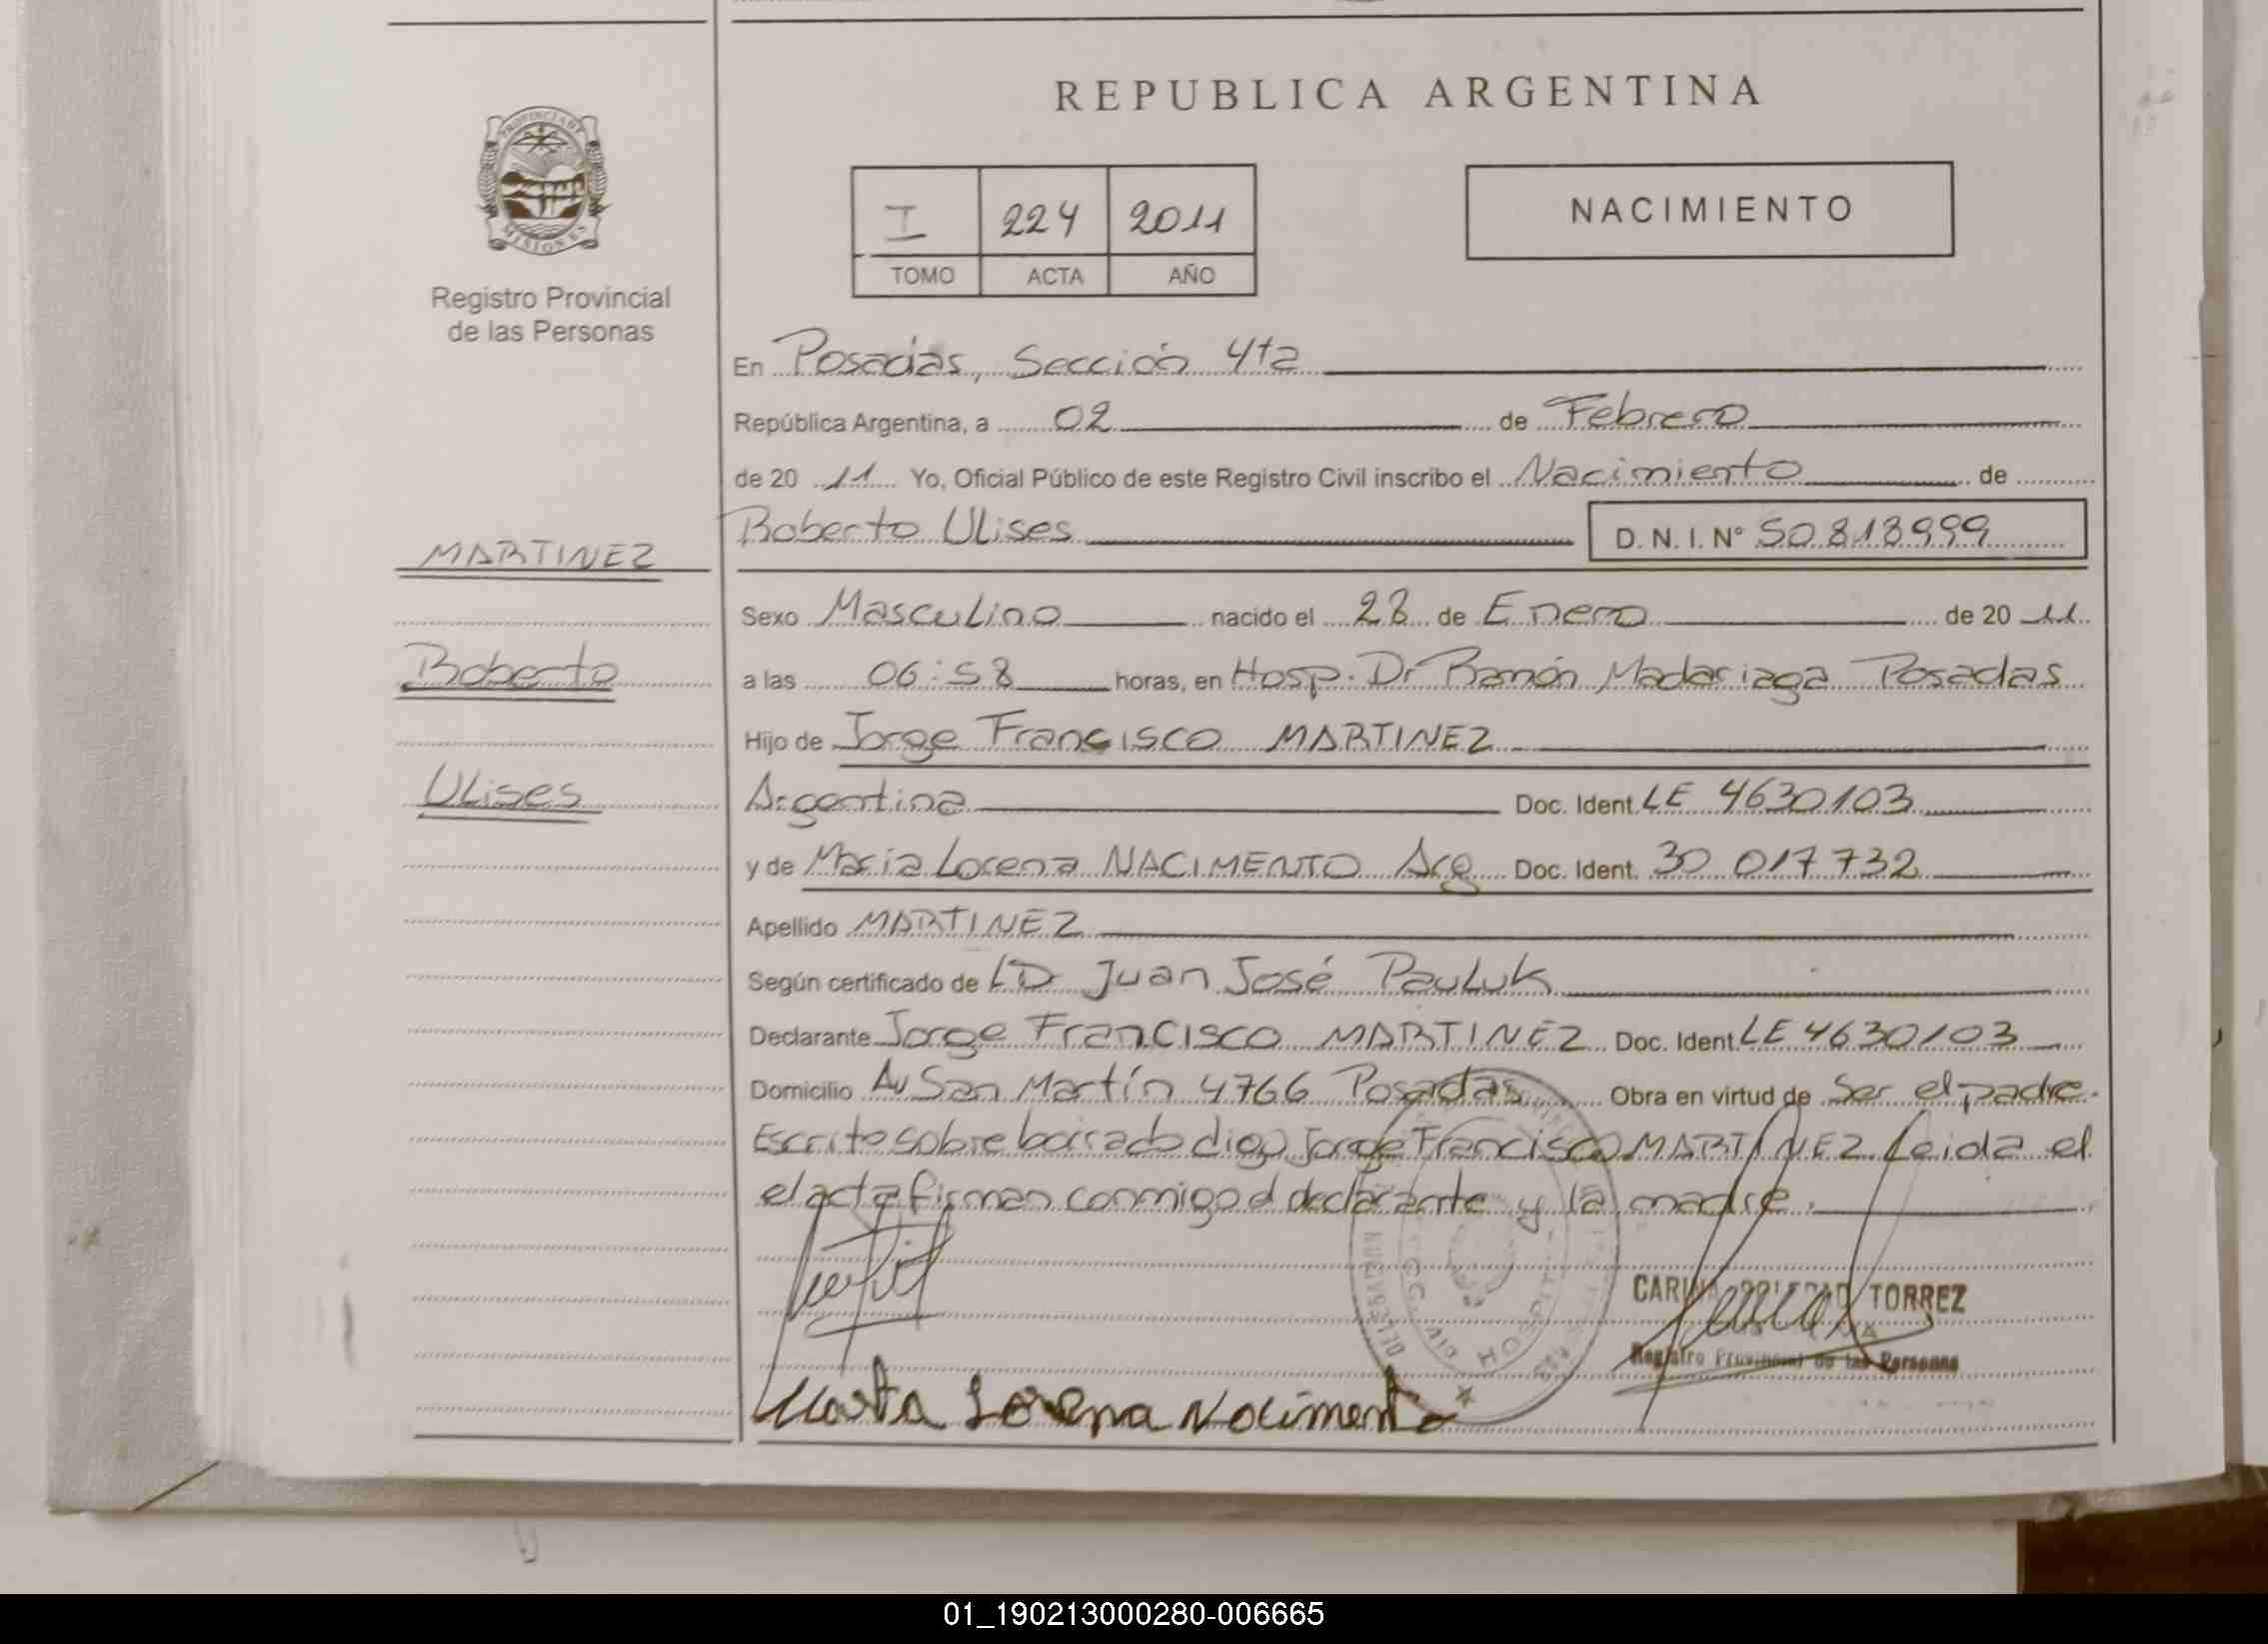 REPUBLICA ARGENTINA
PROVINCIA DE
MISIONES
Registro Provincial
de las Personas
I 224 2011
TOMO ACTA AÑO
NACIMIENTO
En Posadas, Sección 4ta
República Argentina, a 02 de Febrero
de 20 11 Yo, Oficial Público de este Registro Civil inscribo el Nacimiento de
Roberto Ulises D.N.I. Nº 50.818.999
MARTINEZ
Roberto
Ulises
Sexo Masculino nacido el 28 de Enero de 20 11
a las 06:58 horas, en Hosp. Dr Ramón Madariaga Posadas
Hijo de Jorge Francisco MARTINEZ
Argentina Doc. Ident. LE 4630103
y de María Lorena NACIMENTO Arg Doc. Ident. 30 017 732
Apellido MARTINEZ
Según certificado de LD Juan José Pauluk
Declarante Jorge Francisco MARTINEZ Doc. Ident. LE 4630103
Domicilio Av San Martín 4766 Posadas Obra en virtud de Ser el padre.
Escrito sobre borrado digo Jorge Francisco MARTINEZ. Leida el
el acta firman conmigo el declarante y la madre.
TORREZ
Registro Provincial de las Personas
Lorena Nacimento
01_190213000280-006665